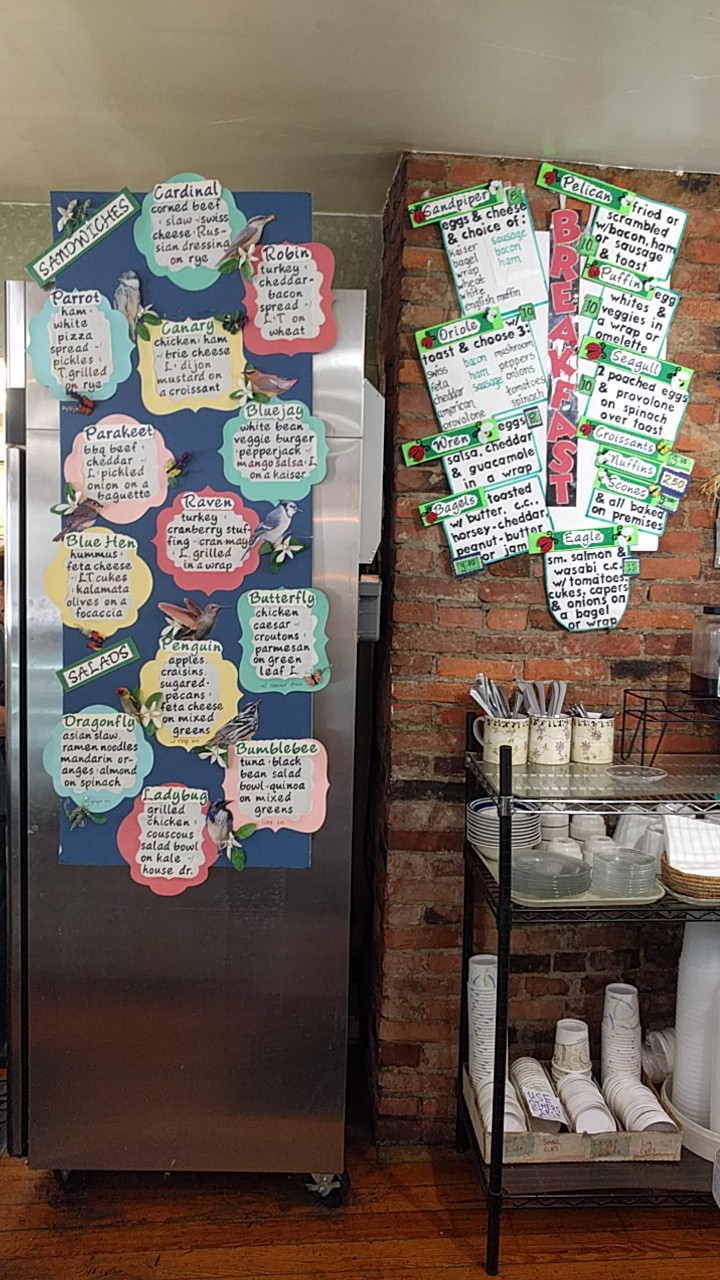 SANDWICHES
Cardinal
corned beef
slaw swiss
cheese Rus-
sian dressing
on rye
Robin
turkey
cheddar-
bacon
spread
L T on
wheat
Parrot
ham
white
pizza
spread
pickles
T. grilled
on rye
Canary
chicken ham
brie cheese
L dijon
mustard on
a croissant
Bluejay
white bean
veggie burger
pepperjack
mango salsa L
on a kaiser
Parakeet
bbq beef
cheddar
L pickled
onion on a
baguette
Raven
turkey
cranberry stuf-
fing cran mayo
L. grilled
in a wrap
Blue Hen
hummus
feta cheese
LT cukes
kalamata
olives on a
focaccia
Butterfly
chicken
caesar
croutons
parmesan
on green
leaf L
SALADS
Penguin
apples
craisins
sugared
pecans
feta cheese
on mixed
greens
Dragonfly
asian slaw
ramen noodles
mandarin or-
anges almond
on spinach
Bumblebee
tuna black
bean salad
bowl quinoa
on mixed
greens
Ladybug
grilled
chicken
couscous
salad bowl
on kale
house dr.
BREAKFAST
Sandpiper 8
eggs & cheese
& choice of:
kaiser sausage
bagel bacon
wrap ham
wheat
white
english muffin
Pelican
fried or
scrambled
w/bacon, ham
or sausage
& toast
10
Puffin
egg
whites &
veggies in
a wrap or
omelette
10
Oriole
w/ 10
toast & choose 3:
swiss bacon mushroom
feta ham peppers
cheddar sausage onions
american tomatoes
provolone spinach
Seagull
2 poached eggs
& provolone
on spinach
over toast
10
Wren
eggs
salsa, cheddar
& guacamole
in a wrap
Croissants
Muffins 2.50
Scones
& all baked
on premises
Bagels
toasted
w/ butter, c.c.,
horsey-cheddar,
peanut-butter
or jam
Eagle
sm. salmon &
wasabi c.c.
w/ tomatoes,
cukes, capers
& onions on
a bagel
or wrap